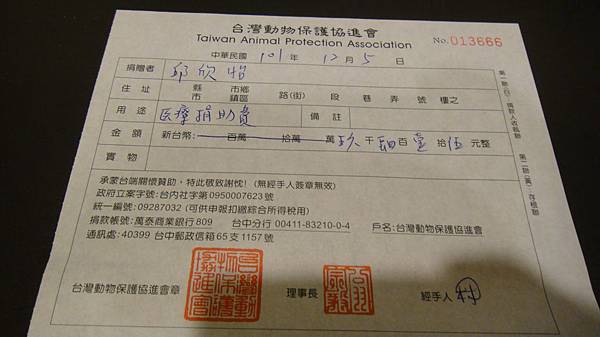 台灣動物保護協進會
Taiwan Animal Protection Association
No. 013666
中華民國 101 年 12 月 5 日
捐贈者 邱欣怡
住址 縣市 市鄉鎮區 路(街) 段 巷 弄 號 樓之
用途 医療捐助費 備註
金額 新台幣: 百萬 拾萬 萬 玖 千 百 壹 拾 伍 元整
實物
承蒙台端關懷贊助,特此敬致謝忱!(無經手人簽章無效)
政府立案字號:台內社字第0950007623號
統一編號:09287032 (可供申報扣繳綜合所得稅用)
捐款帳號:萬泰商業銀行809 台中分行 00411-83210-0-4 戶名:台灣動物保護協進會
通訊處:40399 台中郵政信箱65支1157號
台灣動物保護協進會章
台灣動物保護協進會
理事長
經手人